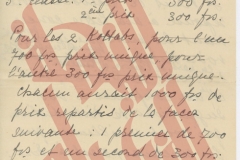 2ième prix 300 frs.
Pour les 2 Kottabs pour l'un
700 frs prix unique pour
l'autre 300 frs prix unique.
chacun aurait 1000 frs de
prix repartis de la façon
suivante : 1 premier de 700
frs et un second de 300 frs.